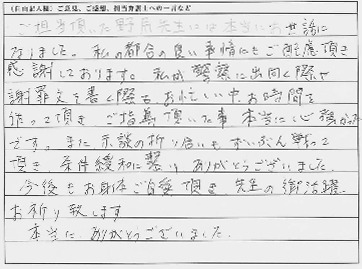 （自由記入欄）ご意見、ご感想、担当弁護士への一言など
ご担当頂いた野島先生には本当にお世話に
なりました。私の都合の良い事情にもご配慮頂き
感謝しております。私が警察に出向く際や
謝罪文を書く際もお忙しい中お時間を
作って頂き ご指導頂いた事 本当に心強かった
です。また示談の折り合いも ずいぶん戦って
頂き 条件緩和に繋り ありがとうございました。
今後もお身体ご自愛頂き 先生の御活躍
お祈り致します
本当に ありがとうございました。